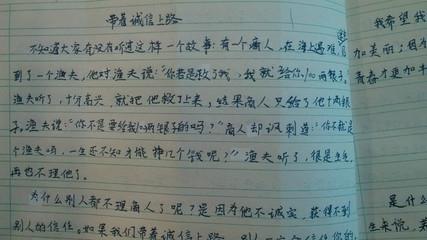 带着诚信上路
不知道大家有没有听过这样一个故事:有个商人,在海上遇难,遇
到了一个渔夫,他对渔夫说:“你若是救了我,我就给你100两银子。
渔夫听了,十分高兴,就把他救了上来,结果商人只给了他十两银
子。渔夫说:“你不是要给我100两银子的吗?”商人却讽刺道:“你不就是
个渔夫吗,一生还不知才能挣几个钱呢?”渔夫听了,很是生气,
再也不理他了。
为什么别人都不理商人了呢?是因为他不诚实,获得不到
别人的信任。如果我们带着诚信上路,别人
我希望我
加美丽;因为
青春才更加丰
是什么
生来说,